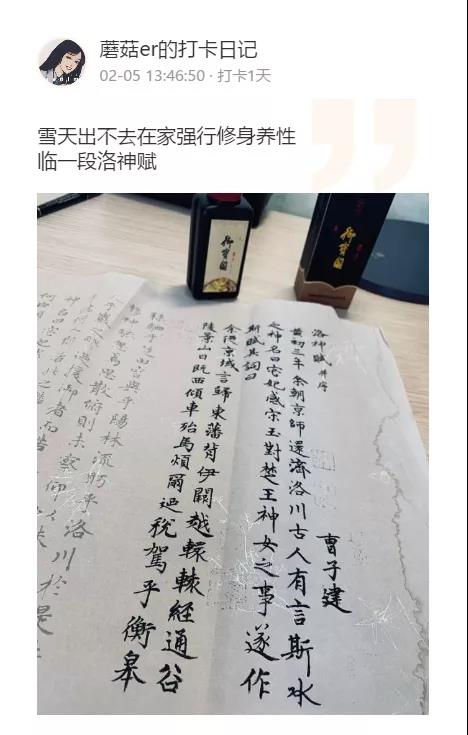 蘑菇er的打卡日记
02-05 13:46:50 · 打卡1天
雪天出不去在家强行修身养性
临一段洛神赋
洛神賦 并序
曹子建
黄初三年余朝京師還濟洛川古人有言斯水
之神名曰宓妃感宋玉對楚王神女之事遂作
斯賦其詞曰
余從京域言歸東藩背伊闕越轘轅経通谷
陵景山日既西傾車殆馬煩爾迺税駕乎衡皋
秣駟乎芝田容與乎陽林流眄乎洛川於是
精移神駭忽焉思散俯則未察仰以